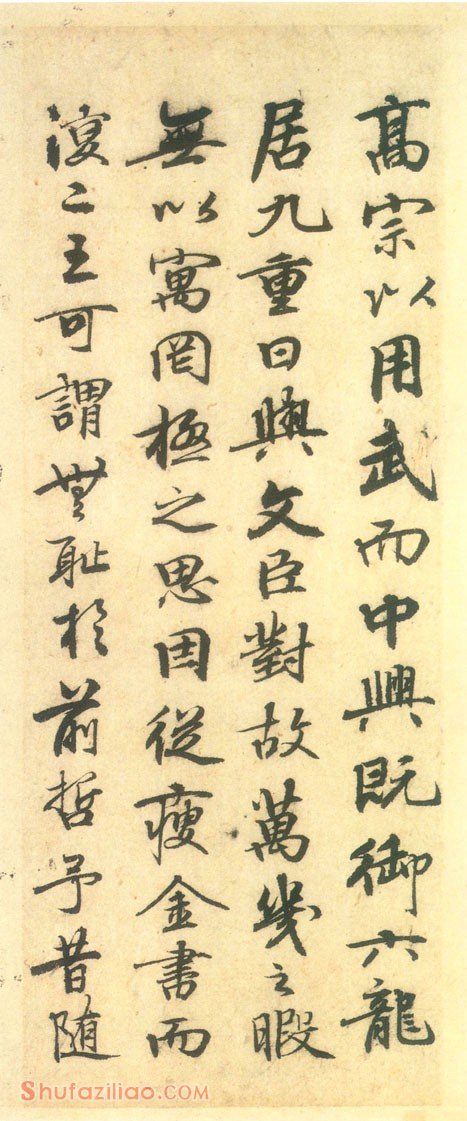 高宗以用武而中興既御六龍
居九重日與文臣對故萬幾之暇
無以寓罔極之思因從瘦金書而
復二王可謂無耻於前哲予昔随
Shufaziliao.COM